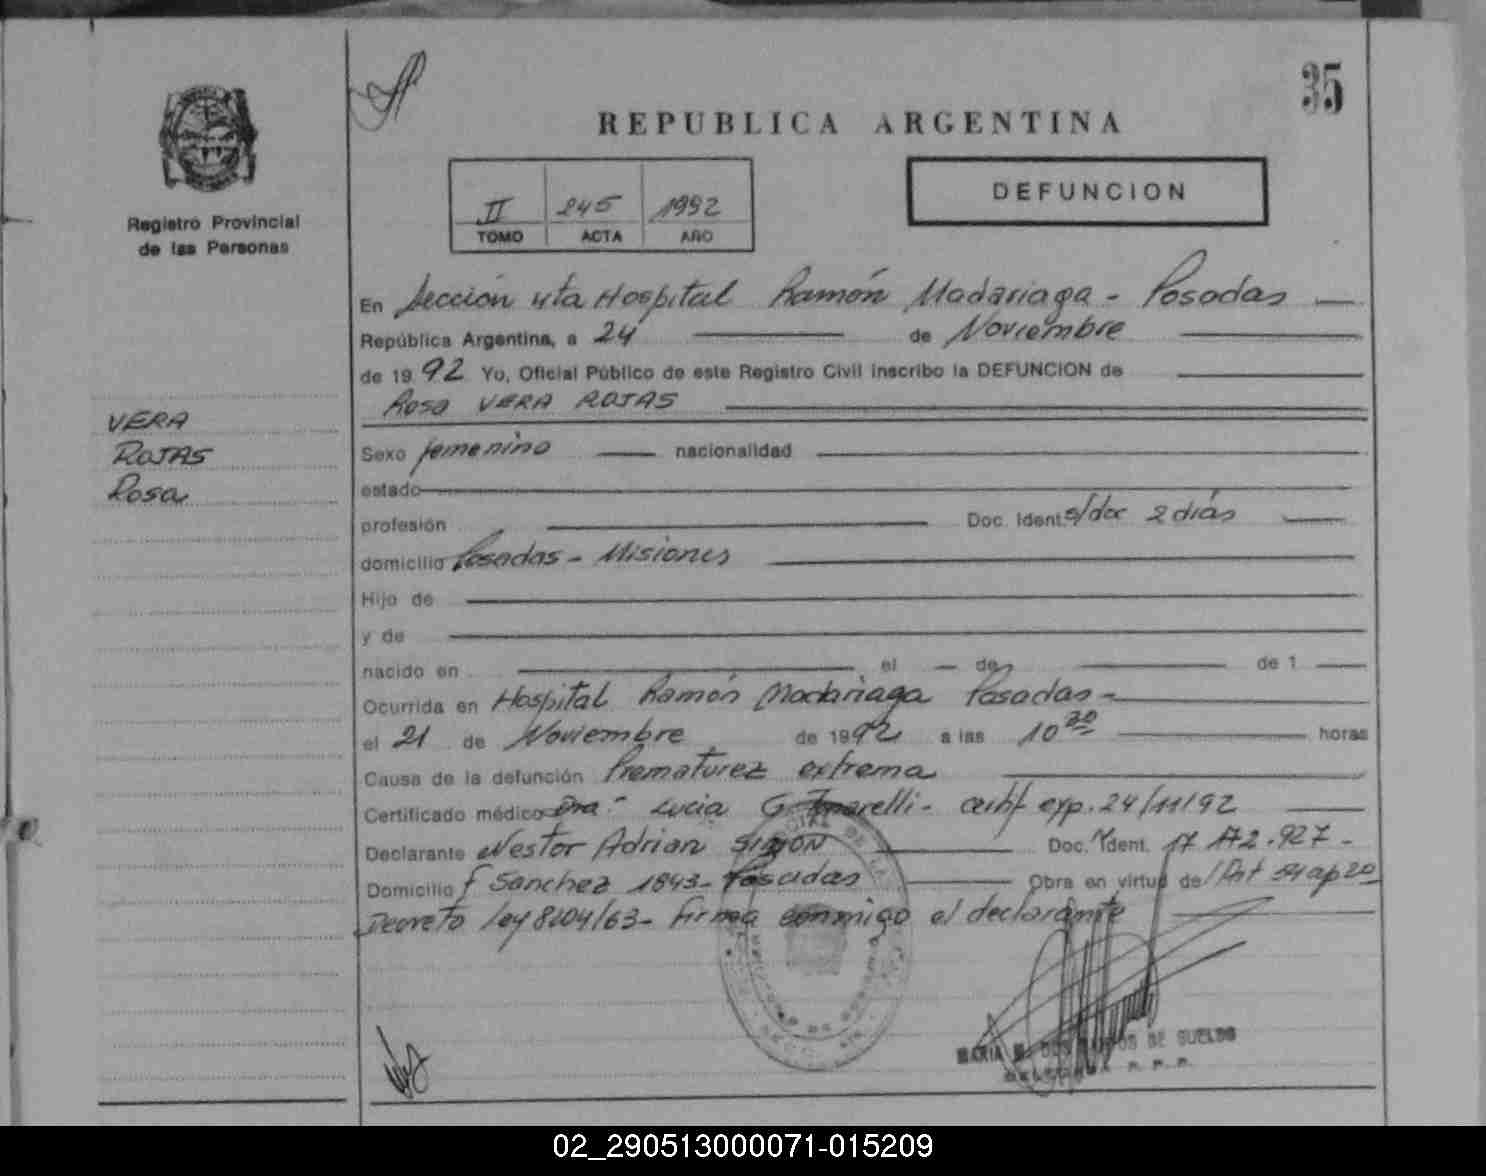 35
REPUBLICA ARGENTINA
DEFUNCION
II 245 1992
TOMO ACTA AÑO
Registro Provincial
de las Personas
VERA
ROJAS
Rosa
En Sección 4ta Hospital Ramón Madariaga - Posadas
República Argentina, a 24 de Noviembre
de 1992 Yo, Oficial Público de este Registro Civil inscribo la DEFUNCION de
Rosa VERA ROJAS
Sexo femenino nacionalidad
estado
profesión Doc. Ident. s/doc 2 días
domicilio Posadas - Misiones
Hijo de
y de
nacido en el de de 1
Ocurrida en Hospital Ramón Madariaga Posadas -
el 21 de Noviembre de 1992 a las 10 30 horas
Causa de la defunción Prematurez extrema
Certificado médico Dra. Lucia G. - certif exp. 24/11/92
Declarante Nestor Adrian SIMON Doc. Ident. 17.172.927 -
Domicilio F Sanchez 1843 - Posadas Obra en virtud de Art 54 ap 20
Decreto ley 8204/63 - firma conmigo el declarante
MARIA DE SUELDO
02_290513000071-015209